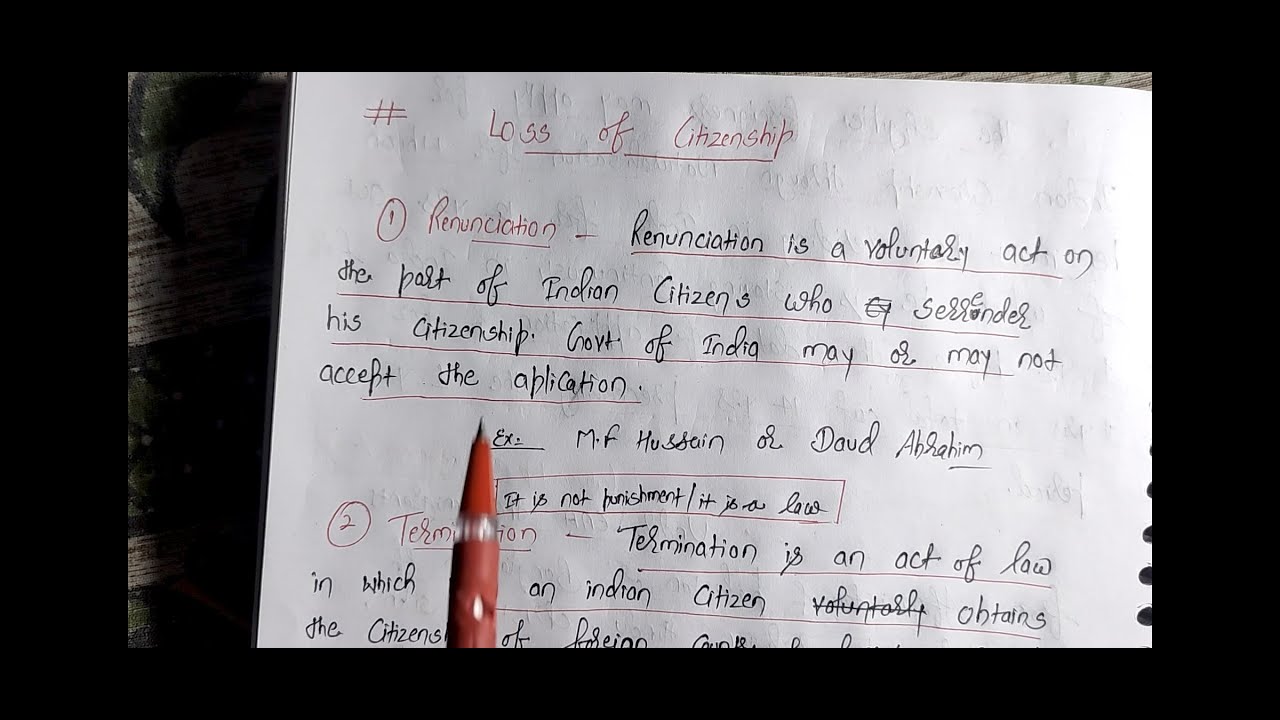 # Loss of Citizenship
① Renunciation - Renunciation is a voluntary act on
the part of Indian Citizens who serrender
his citizenship. Govt of India may or may not
accept the aplication.
Ex:- M.F Hussain or Daud Abrahim
It is not punishment/it is a law
② Termination - Termination is an act of law
in which an indian citizen voluntarly obtains
the Citizenship of foreign